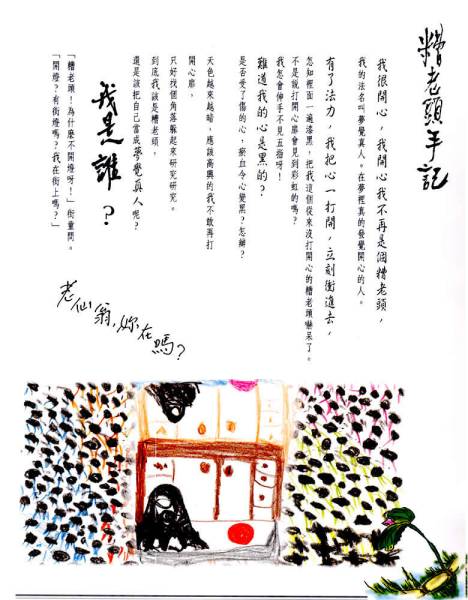 糟老頭手記
我很開心,我開心我不再是個糟老頭,
我的法名叫夢覺真人。在夢裡真的發覺開心的人。
有了法力,我把心一打開,立刻衝進去,
怎知裡面一遍漆黑,把我這個從來沒打開心的糟老頭嚇呆了。
不是說打開心扉會見到彩虹的嗎?
我怎會伸手不見五指呀!
難道我的心是黑的?
是否受了傷的心,瘀血令心變黑?怎辦?
天色越來越暗,應該高興的我不敢再打
開心扉。
只好找個角落躲起來研究研究。
到底我該是糟老頭,
還是該把自己當成夢覺真人呢?
我是誰?
「糟老頭!為什麼不開燈呀!」街童問。
「開燈?有街燈嗎?我在街上嗎?」
老仙翁,妳在嗎?